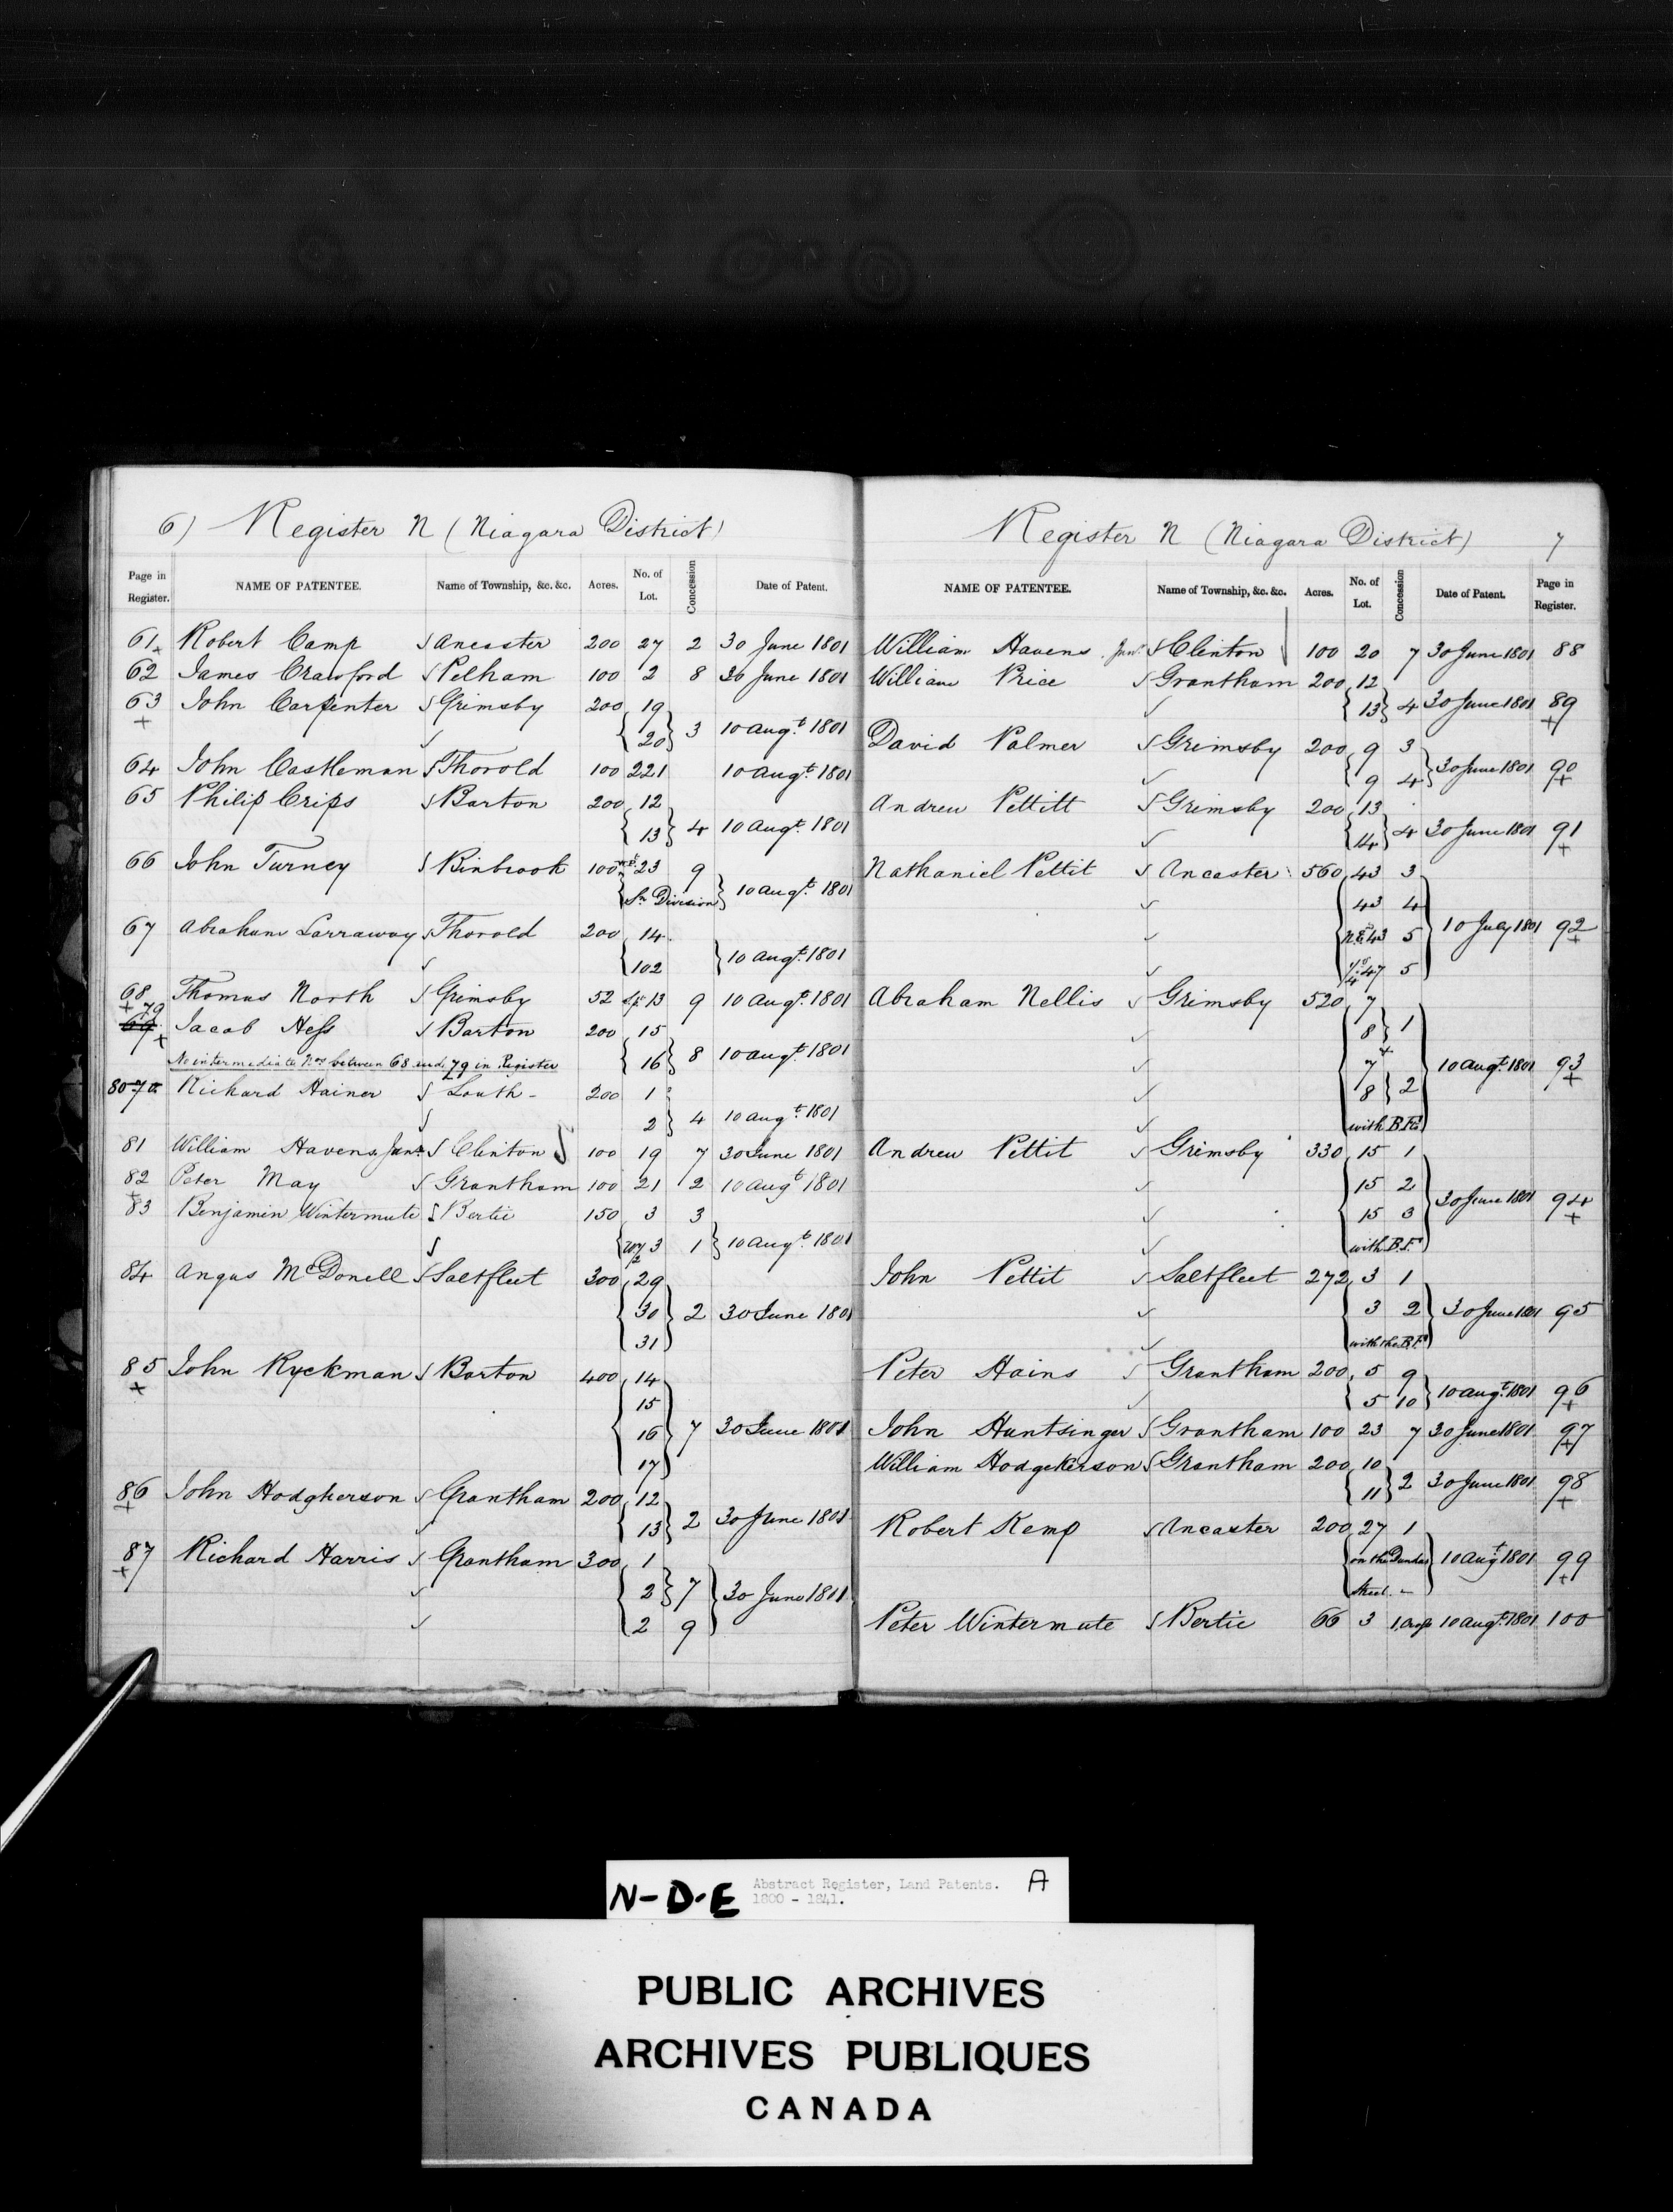 6) Register N (Niagara District)
Page in Register. NAME OF PATENTEE. Name of Township, &c. &c. Acres. No. of Lot. Concession Date of Patent.
61 Robert Camp Ancaster 200 27 2 30 June 1801
62 James Crawford Pelham 100 2 8 30 June 1801
63 John Carpenter Grimsby 200 19
20 3 10 Augt. 1801
64 John Castleman Thorold 100 221 10 Augt. 1801
65 Philip Crips Barton 200 12
13 4 10 Augt. 1801
66 John Turney Binbrook 100 23 9
Division 10 Augt. 1801
67 Abraham Larraway Thorold 200 14
102 10 Augt. 1801
68 Thomas North Grimsby 52 13 9 10 Augt. 1801
79
69 Jacob Hess Barton 200 15
16 8 10 Augt. 1801
No intermediate Nos between 68 and 79 in Register
80 70 Richard Hainer Louth 200 1
2 4 10 Augt. 1801
81 William Havens Junr. Clinton 100 19 7 30 June 1801
82 Peter May Grantham 100 21 2 10 Augt 1801
83 Benjamin Wintermute Bertie 150 3 3
3 1 10 Augt. 1801
84 Angus McDonell Saltfleet 300 29
30 2 30 June 1801
31
85 John Ryckman Barton 400 14
15
16 7 30 June 1801
17
86 John Hodgkerson Grantham 200 12
13 2 30 June 1801
87 Richard Harris Grantham 300 1
2 7 30 June 1801
2 9
Register N (Niagara District) 7
NAME OF PATENTEE. Name of Township, &c. &c. Acres. No. of Lot. Concession Date of Patent. Page in Register.
William Havens Junr. Clinton 100 20 7 30 June 1801 88
William Price Grantham 200 12
13 4 30 June 1801 89
David Palmer Grimsby 200 9 3
9 4 30 June 1801 90
Andrew Pettitt Grimsby 200 13
14 4 30 June 1801 91
Nathaniel Pettit Ancaster 560 43 3
43 4
43 5 10 July 1801 92
47 5
Abraham Nellis Grimsby 520 7
8 1
7 10 Augt. 1801 93
8 2
with B.Fs.
Andrew Pettit Grimsby 330 15 1
15 2
15 3 30 June 1801 94
with B.Fs.
John Pettit Saltfleet 272 3 1
3 2 30 June 1801 95
with the B.F.
Peter Hains Grantham 200 5 9
5 10 10 Augt. 1801 96
John Huntsinger Grantham 100 23 7 30 June 1801 97
William Hodgekerson Grantham 200 10
11 2 30 June 1801 98
Robert Kemp Ancaster 200 27 1
on the Dundas 10 Augt 1801 99
Street
Peter Wintermute Bertie 66 3 1. 10 Augt. 1801 100
N-D-E Abstract Register, Land Patents. A
1800 - 1841.
PUBLIC ARCHIVES
ARCHIVES PUBLIQUES
CANADA